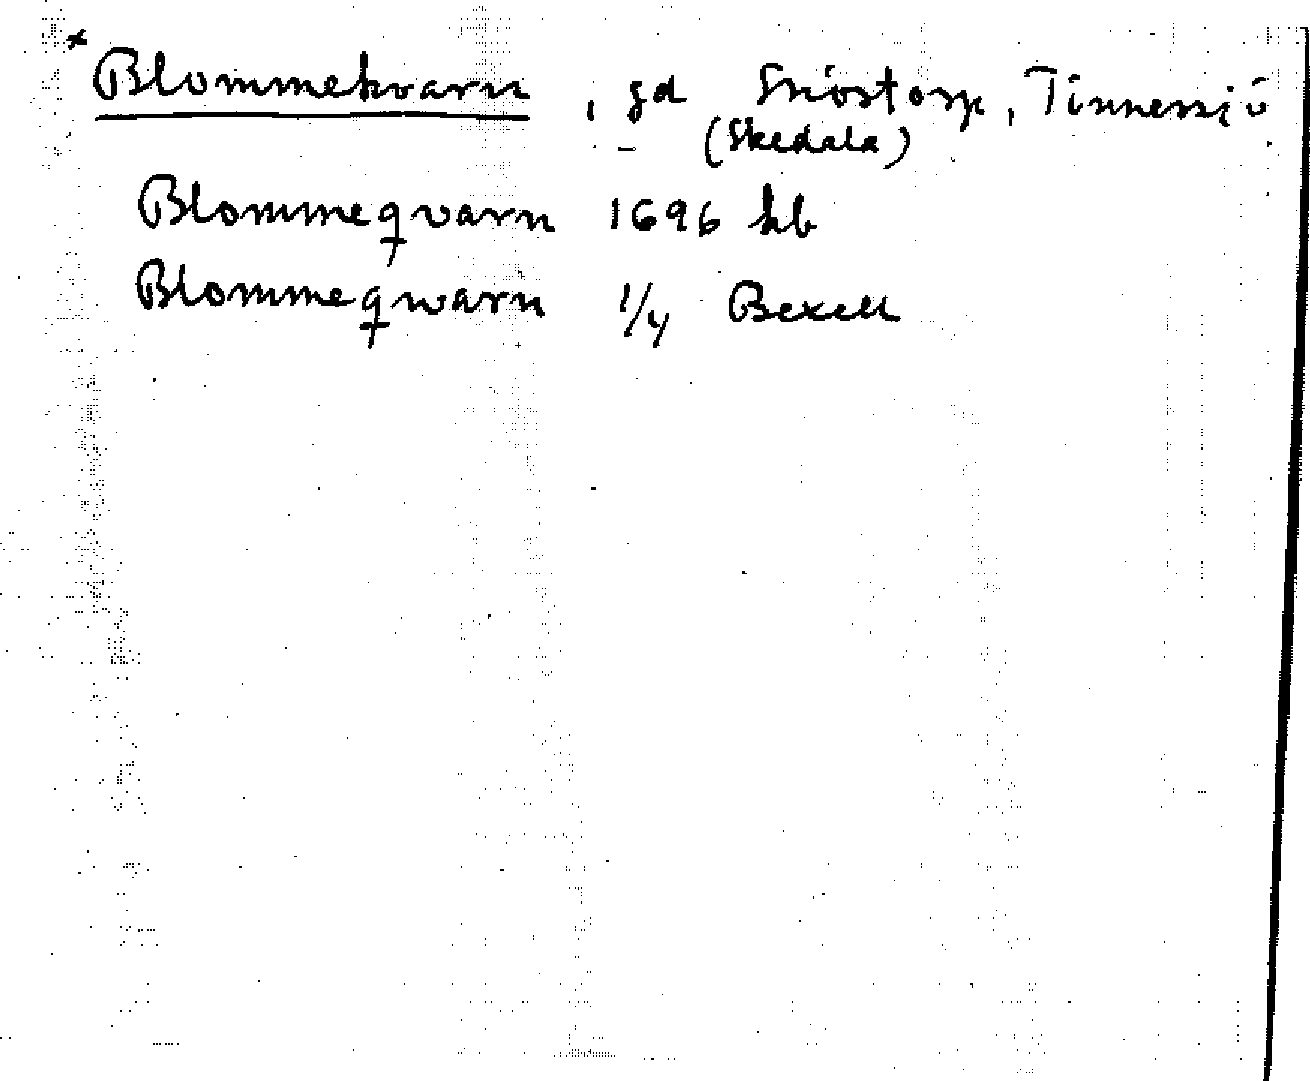 × Blommekvarn, gd Snöstorp, Tönnersjö
(Skedala)
Blommeqvarn 1696 kb
Blommeqwarn 1/4 Bexell